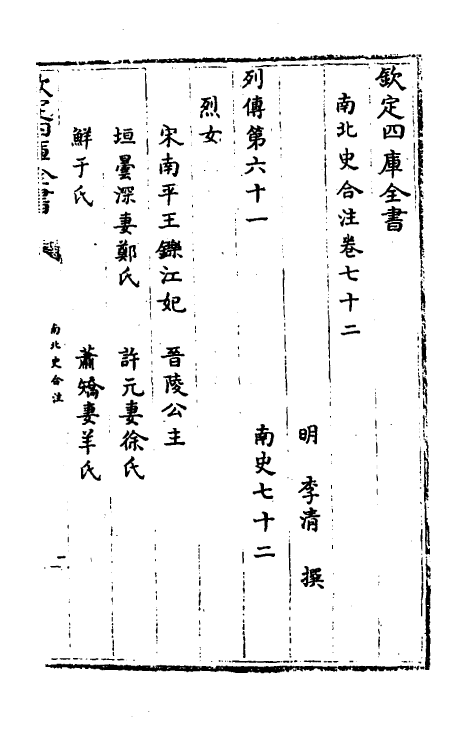 欽定四庫全書
南北史合注卷七十二
明 李清 撰
列傳第六十一 南史七十二
烈女
宋南平王鑠江妃 晉陵公主
垣曇深妻鄭氏 許元妻徐氏
鮮于氏 蕭矯妻羊氏
欽定四庫全書
南北史合注